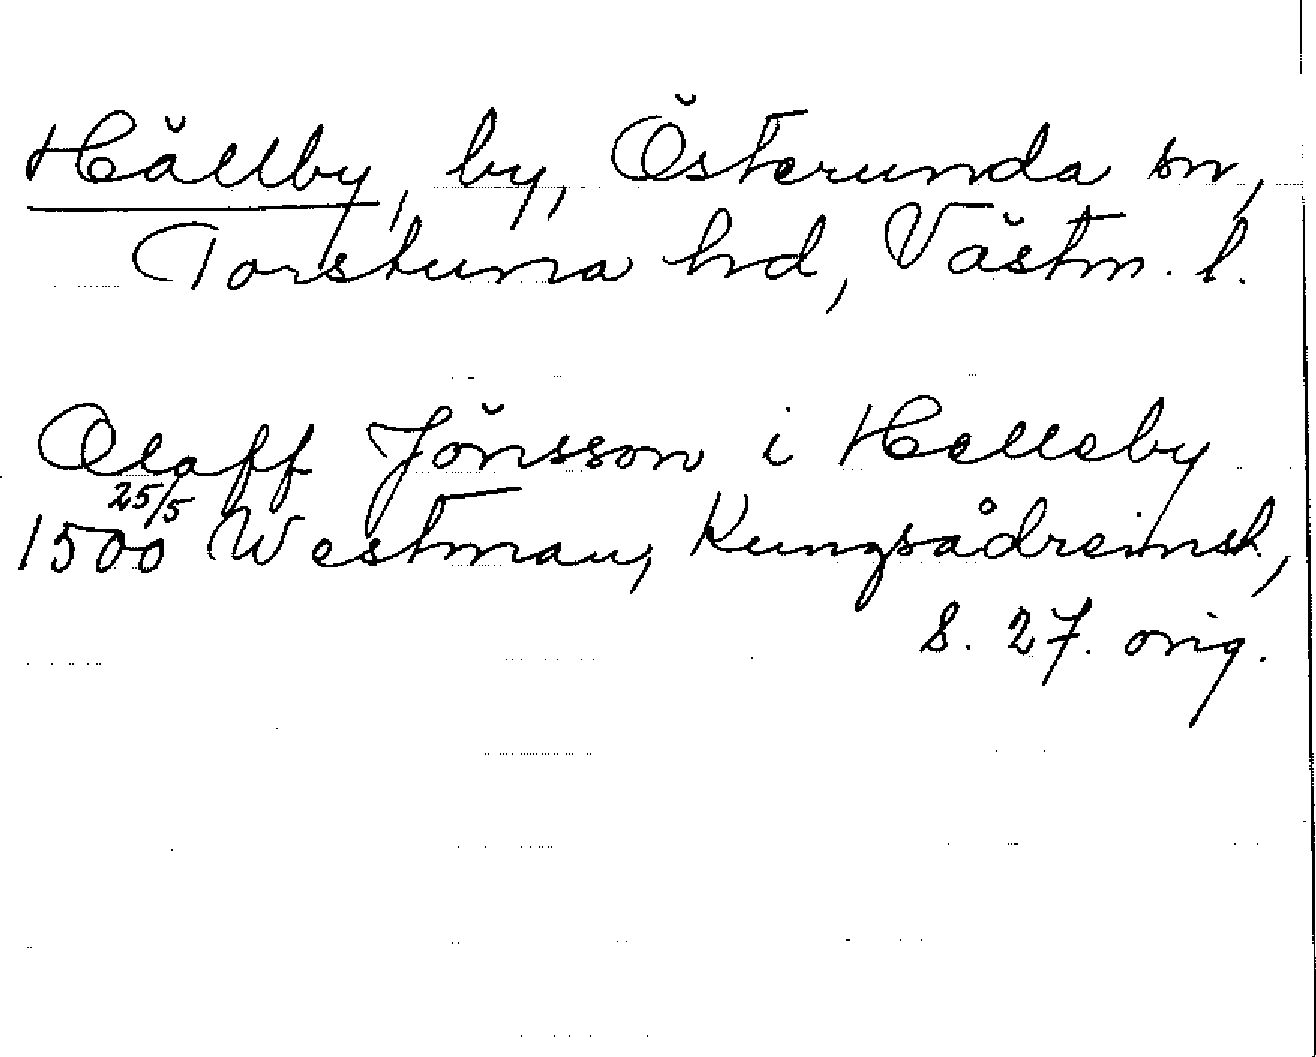 Hällby, by, Österunda sn,
Torstuna hd, Västm. l.
Olaff Jönsson i Helleby
25/5
1500 Westman, Kungsådreinsk.,
s. 27. orig.